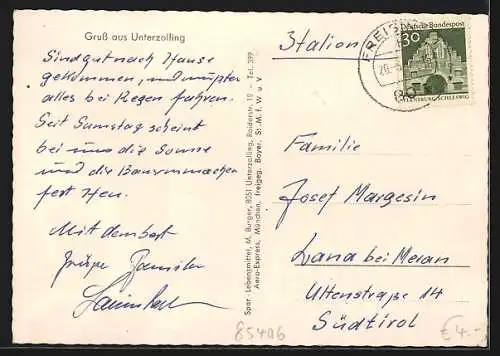 Gruß aus Unterzolling
Sind gut nach Hause
gekommen, und mußten
alles bei Regen fahren.
Seit Samstag scheint
bei uns die Sonne
und die Bauern machen
fest Heu.
Mit den best
Grüße Familie
Spar Lebensmittel, M. Burger, 8051 Unterzolling, Roider­str. 10 - Tel. 397
Aero-Express, München, freigeg. Bayer. St. M. f. W. u. V.
Italien
FREISING
Deutsche Bundespost
30
FLENSBURG/SCHLESWIG
Familie
Josef Margesin
Lana bei Meran
Uttenstraße 14
Südtirol
85406
€4.-